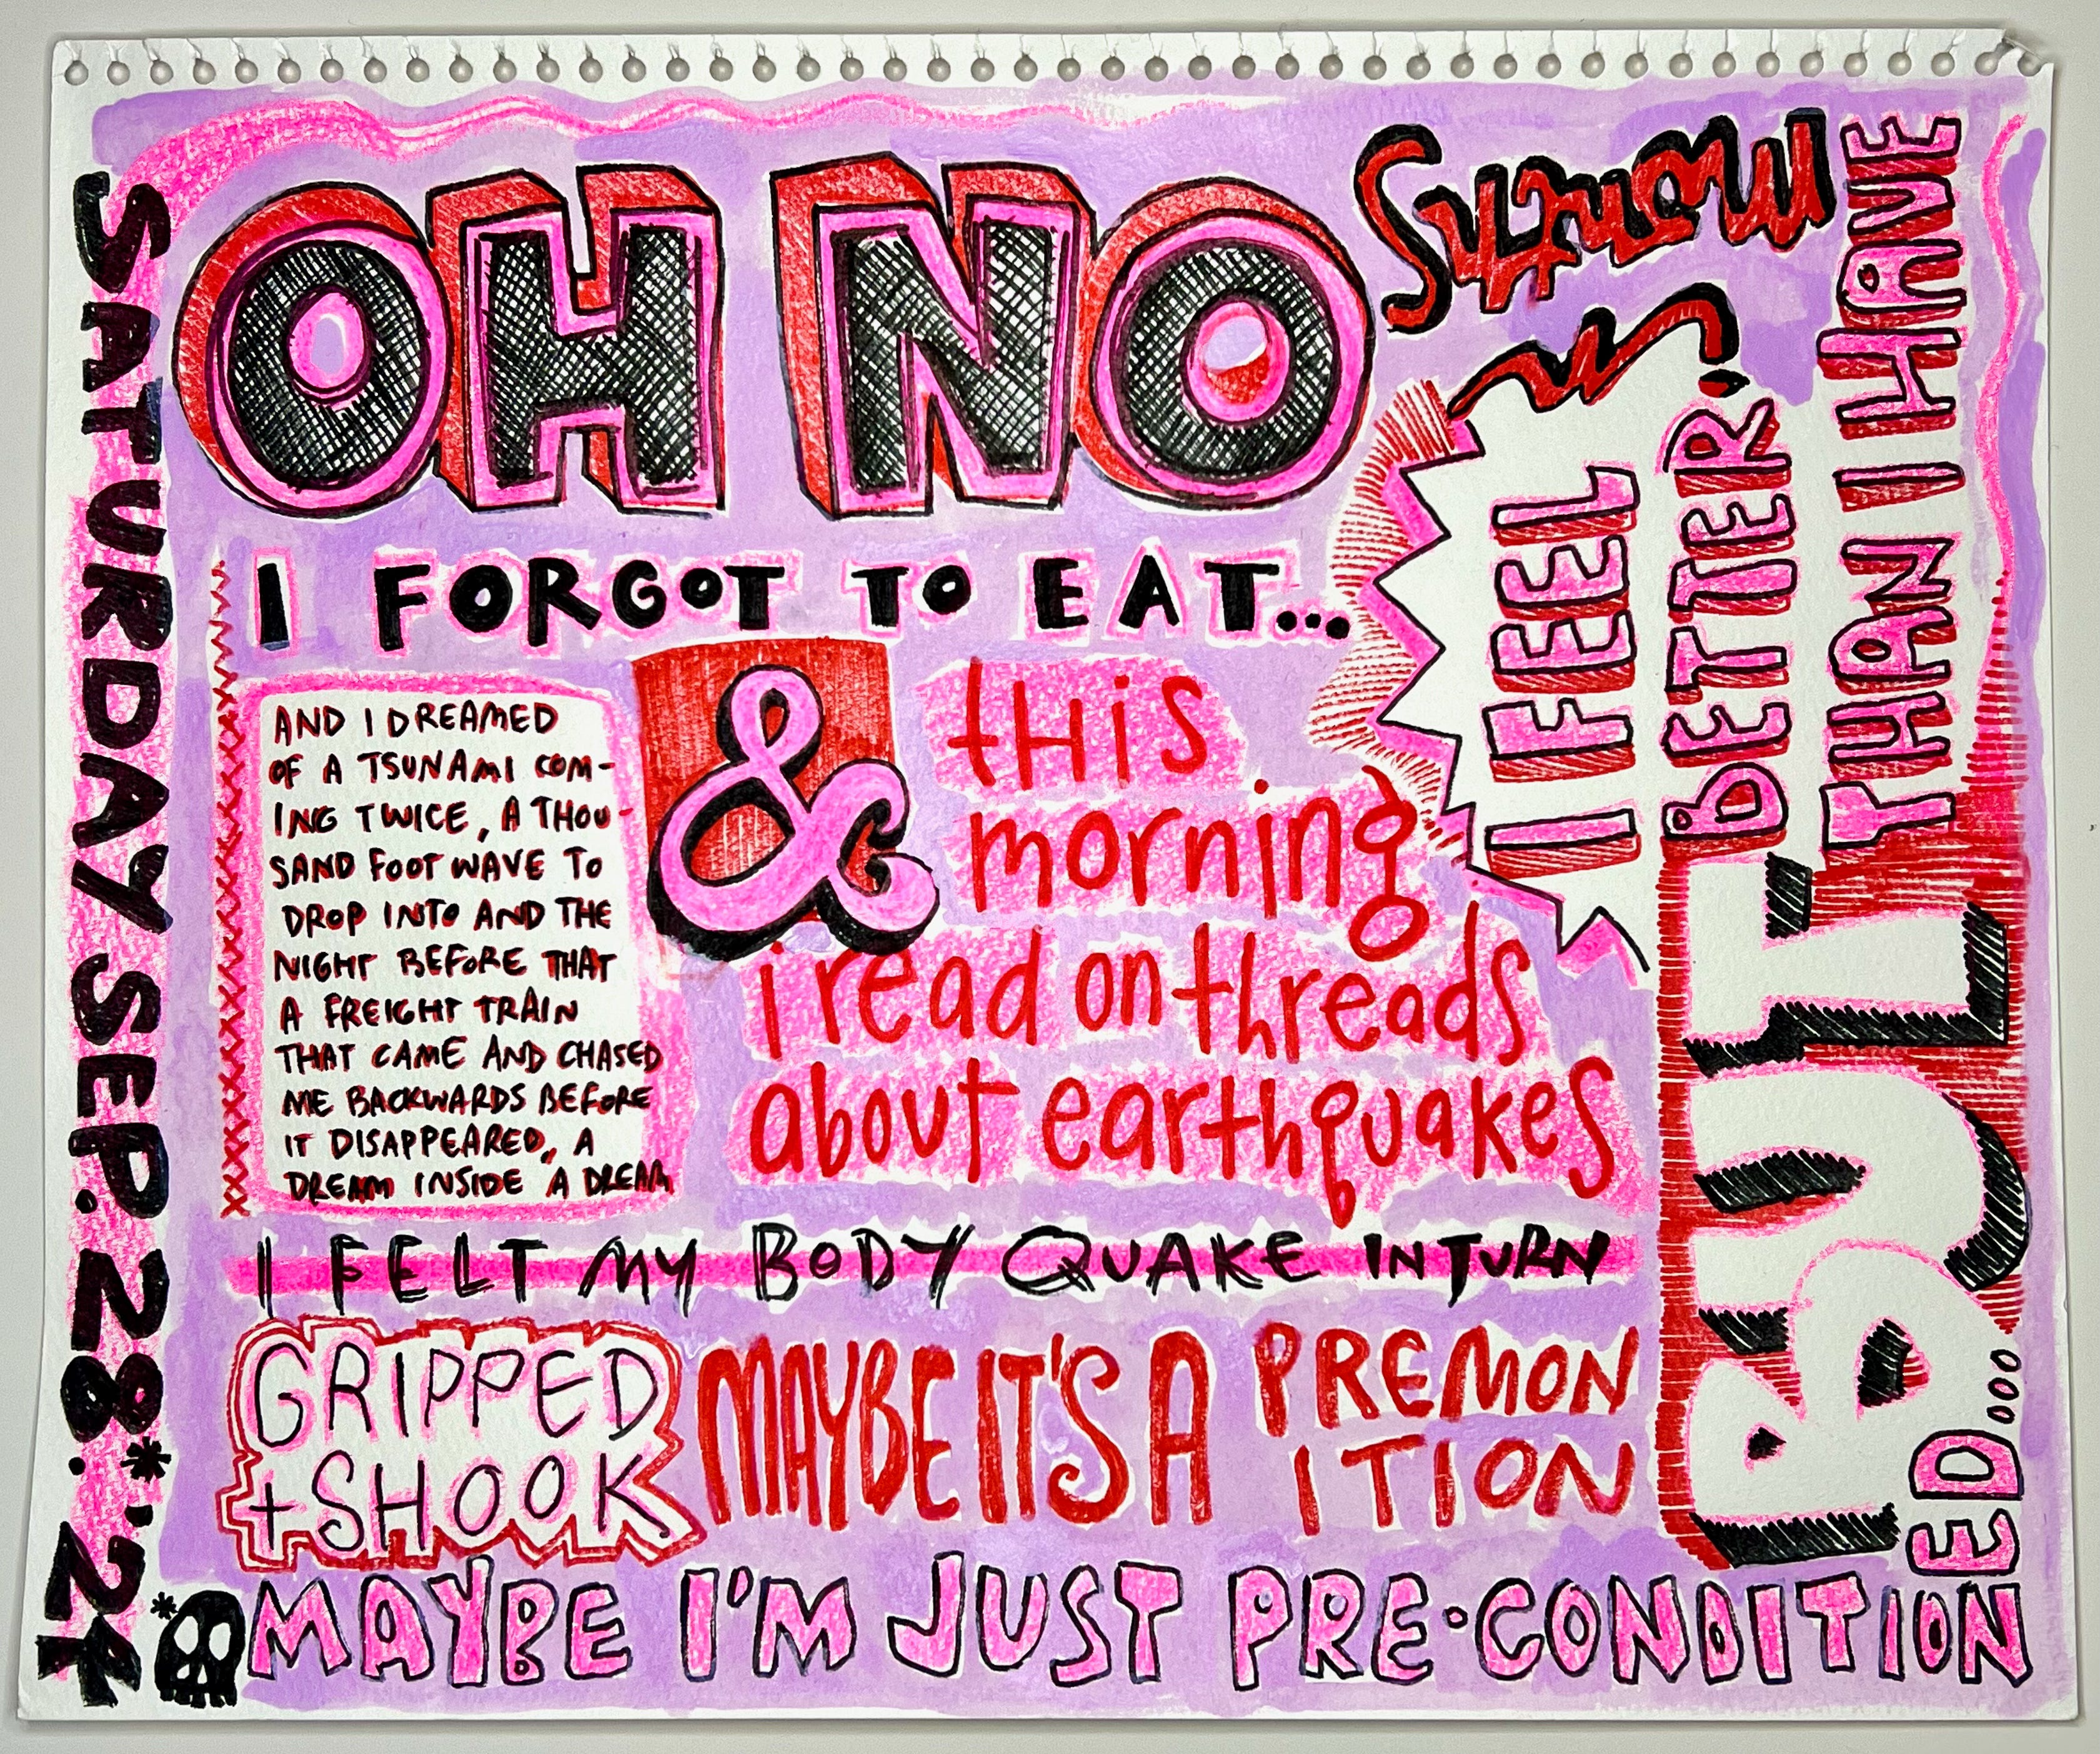 SATURDAY SEP. 28.*'24*
OH NO
I FORGOT TO EAT...
AND I DREAMED
OF A TSUNAMI COM-
ING TWICE, A THOU-
SAND FOOT WAVE TO
DROP INTO AND THE
NIGHT BEFORE THAT
A FREIGHT TRAIN
THAT CAME AND CHASED
ME BACKWARDS BEFORE
IT DISAPPEARED, A
DREAM INSIDE A DREAM
&
this
morning
i read on threads
about earthquakes
I FELT MY BODY QUAKE IN TURN
GRIPPED
+ SHOOK
MAYBE IT'S A
PREMON
ITION
MAYBE I'M JUST PRE-CONDITION
ED...
BUT
I FEEL
BETTER
THAN I HAVE
in
months